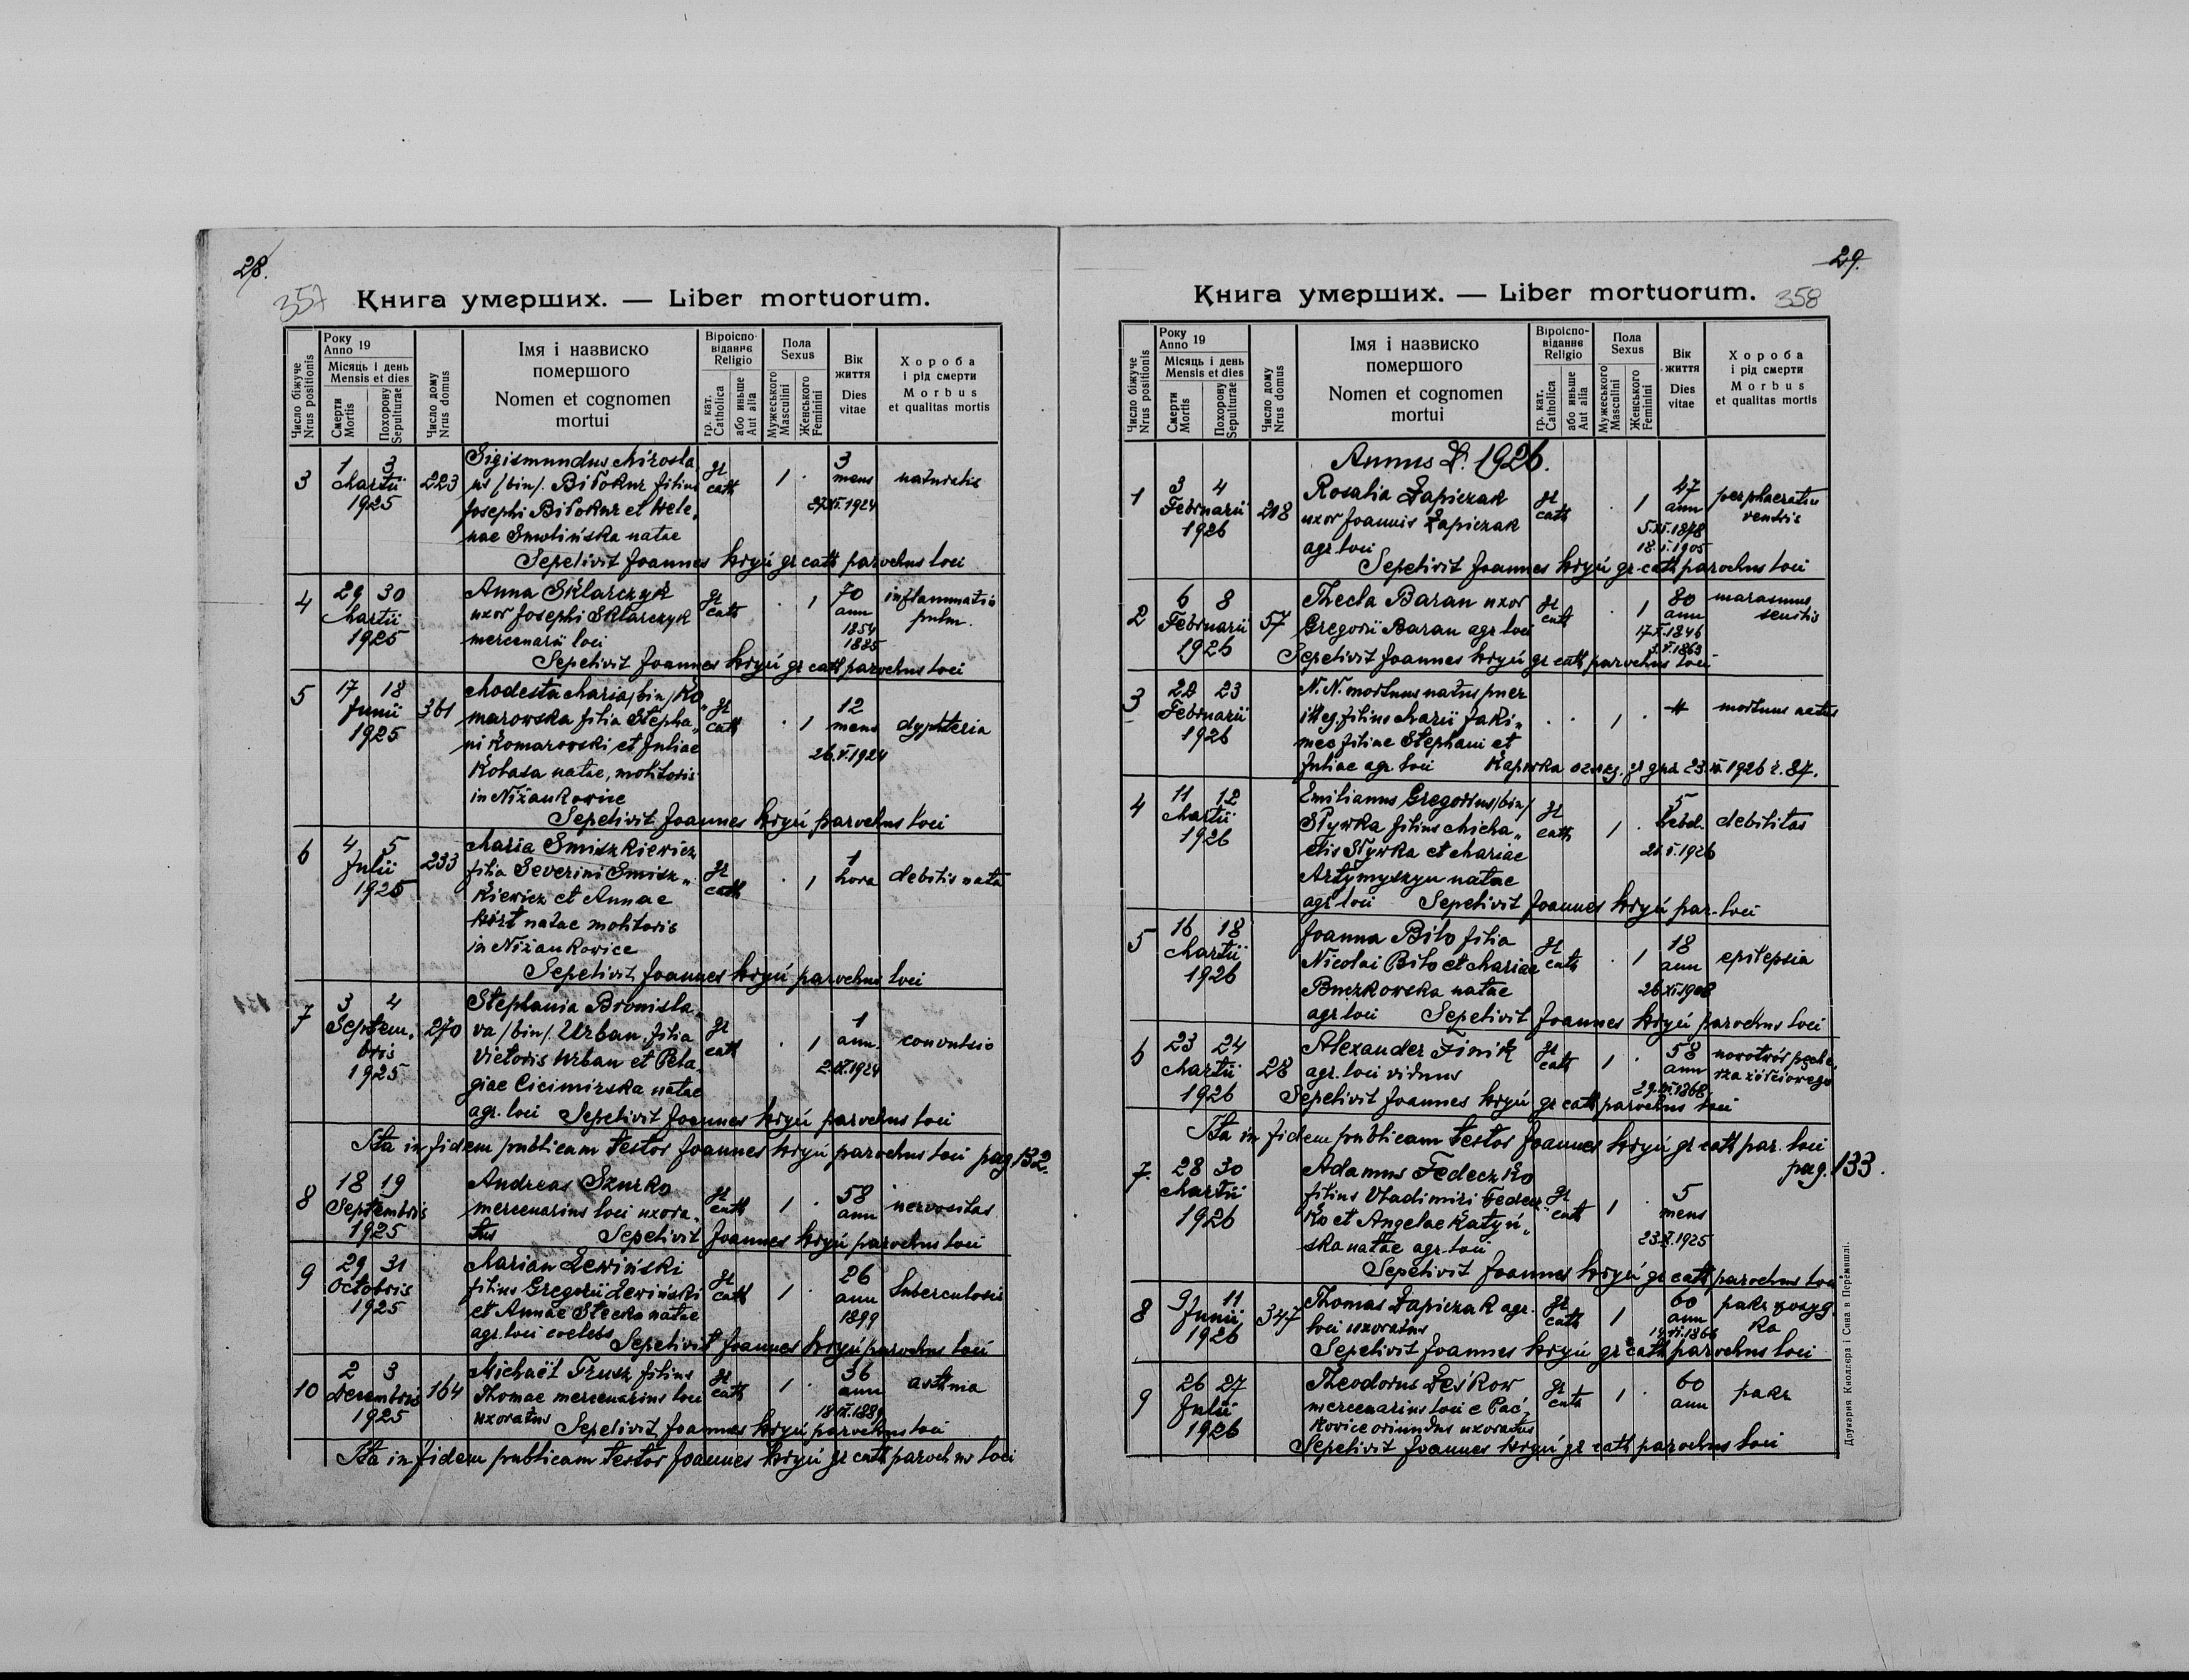 28.
357
Книга умерших. — Liber mortuorum.
Число біжуче
Nrus positionis
Року
Anno 19
Місяць і день
Mensis et dies
Смерти
Mortis
Похорону
Sepulturae
Число дому
Nrus domus
Імя і назвиско
помершого
Nomen et cognomen
mortui
Віроіспо-
віданнє
Religio
гр. кат.
Catholica
або иньше
Aut alia
Пола
Sexus
Мужеського
Masculini
Женського
Feminini
Вік
життя
Dies
vitae
Хороба
і рід смерти
Morbus
et qualitas mortis
3
1 3
Martii
1925
223
Sigismundus Mirosla
us /bin/. Biłokur filius
Josephi Biłokur et Hele„
nae Smolińska natae
gr
cath
1 .
3
mens
27.XI.1924
naturalis
Sepelivit Joannes Kryń gr cath parochus loci
4
29 30
Martii
1925
Anna Sklarczyk
uxor Josephi Sklarczyk
mercenarii loci
gr
cath
. 1
70
ann
1854
1885
inflammatio
pulm.
Sepelivit Joannes Kryń gr cath parochus loci
5
17 18
Junii
1925
361
Modesta Maria /bin/ Ko„
marowska filia Stepha„
ni Komarowski et Juliae
Kołasa natae, molitoris
in Niżankowice
gr
cath
. 1
12
mens
26.VI.1924
dyphteria
Sepelivit Joannes Kryń parochus loci
6
4 5
Julii
1925
233
Maria Smiszkiewicz
filia Severini Smisz„
kiewicz et Annae
natae molitoris
in Niżankowice
gr
cath
. 1
1
hora
debilis nata
Sepelivit Joannes Kryń parochus loci
7
3 4
Septem„
bris
1925
270
Stephania Bronisla„
va /bin/. Urban, filia
Victoris Urban et Pela„
giae Cicimirska natae
agr. loci
gr
cath
. 1
1
ann.
2.IX.1924
convulsio
Sepelivit Joannes Kryń parochus loci
Ita in fidem publicam testor Joannes Kryń parochus loci pag 132.
8
18 19
Septembris
1925
Andreas Szurko
mercenarius loci uxora„
tus
gr
cath
1 .
58
ann
nervositas
Sepelivit Joannes Kryń parochus loci
9
29 31
Octobris
1925
Marian Lewiński
filius Gregorii Lewiński
et Annae Stecko natae
agr. loci coelebs
gr
cath
1 .
26
ann
1899
tuberculosis
Sepelivit Joannes Kryń parochus loci
10
2 3
Decembris
1925
164
Michaël Trusz filius
Thomae mercenarius loci
uxoratus
gr
cath
1 .
36
ann
asthma
Sepelivit Joannes Kryń parochus loci
Ita in fidem publicam testor Joannes Kryń gr cath parochus loci
29.
358
Книга умерших. — Liber mortuorum.
Число біжуче
Nrus positionis
Року
Anno 19
Місяць і день
Mensis et dies
Смерти
Mortis
Похорону
Sepulturae
Число дому
Nrus domus
Імя і назвиско
помершого
Nomen et cognomen
mortui
Віроіспо-
віданнє
Religio
гр. кат.
Catholica
або иньше
Aut alia
Пола
Sexus
Мужеського
Masculini
Женського
Feminini
Вік
життя
Dies
vitae
Хороба
і рід смерти
Morbus
et qualitas mortis
Annus D. 1926.
1
3 4
Februarii
1926
218
Rosalia Łapiczak
uxor Joannis Łapiczak
agr loci
gr
cath
. 1
47
ann
5.XI.1878
18.I.1905
ventris
Sepelivit Joannes Kryń gr cath parochus loci
2
6 8
Februarii
1926
57
Thecla Baran uxor
Gregorii Baran agr loci
gr
cath
. 1
80
ann
marasmus
senilis
Sepelivit Joannes Kryń gr cath parochus loci
3
22 23
Februarii
1926
N. N. mortuus natus puer
illeg. filius Marii Jaki„
mec filiae Stephani et
Juliae agr. loci
. .
1 .
mortuus natus
4
11 12
Martii
1926
Emilianus Gregorius /bin/
Styrka filius Micha„
elis Styrka et Mariae
Artymyszyn natae
agr loci
gr
cath
1 .
5
hebd.
debilitas
Sepelivit Joannes Kryń par. loci
5
16 18
Martii
1926
Joanna Biło filia
Nicolai Biło et Mariae
Buczkowska natae
agr loci
gr
cath
. 1
18
ann
26.XI.1908
epilepsia
Sepelivit Joannes Kryń parochus loci
6
23 24
Martii
1926
28
Alexander Finik
agr. loci viduus
gr
cath
1 .
58
ann
nowotwór pęche„
rza żółciowego
Sepelivit Joannes Kryń gr cath parochus loci
Ita in fidem publicam testor Joannes Kryń gr cath par. loci
pag. 133.
7.
28 30
Martii
1926
Adamus Fedeczko
filius Vladimiri Fedecz„
ko et Angelae Katyń„
ska natae agr. loci
gr
cath
1 .
5
mens
23.X.1925
Sepelivit Joannes Kryń gr cath parochus loci
8
9 11
Junii
1926
347
Thomas Łapiczak agr.
loci uxoratus
gr
cath
1
60
ann
Sepelivit Joannes Kryń gr cath parochus loci
9
26 27
Julii
1926
Theodorus Leśkow
mercenarius loci e Pać„
kowice oriundus uxoratus
gr
cath
1 .
60
ann
Sepelivit Joannes Kryń gr cath parochus loci
Друкарня Кноллєра і Сина в Перемишлі.